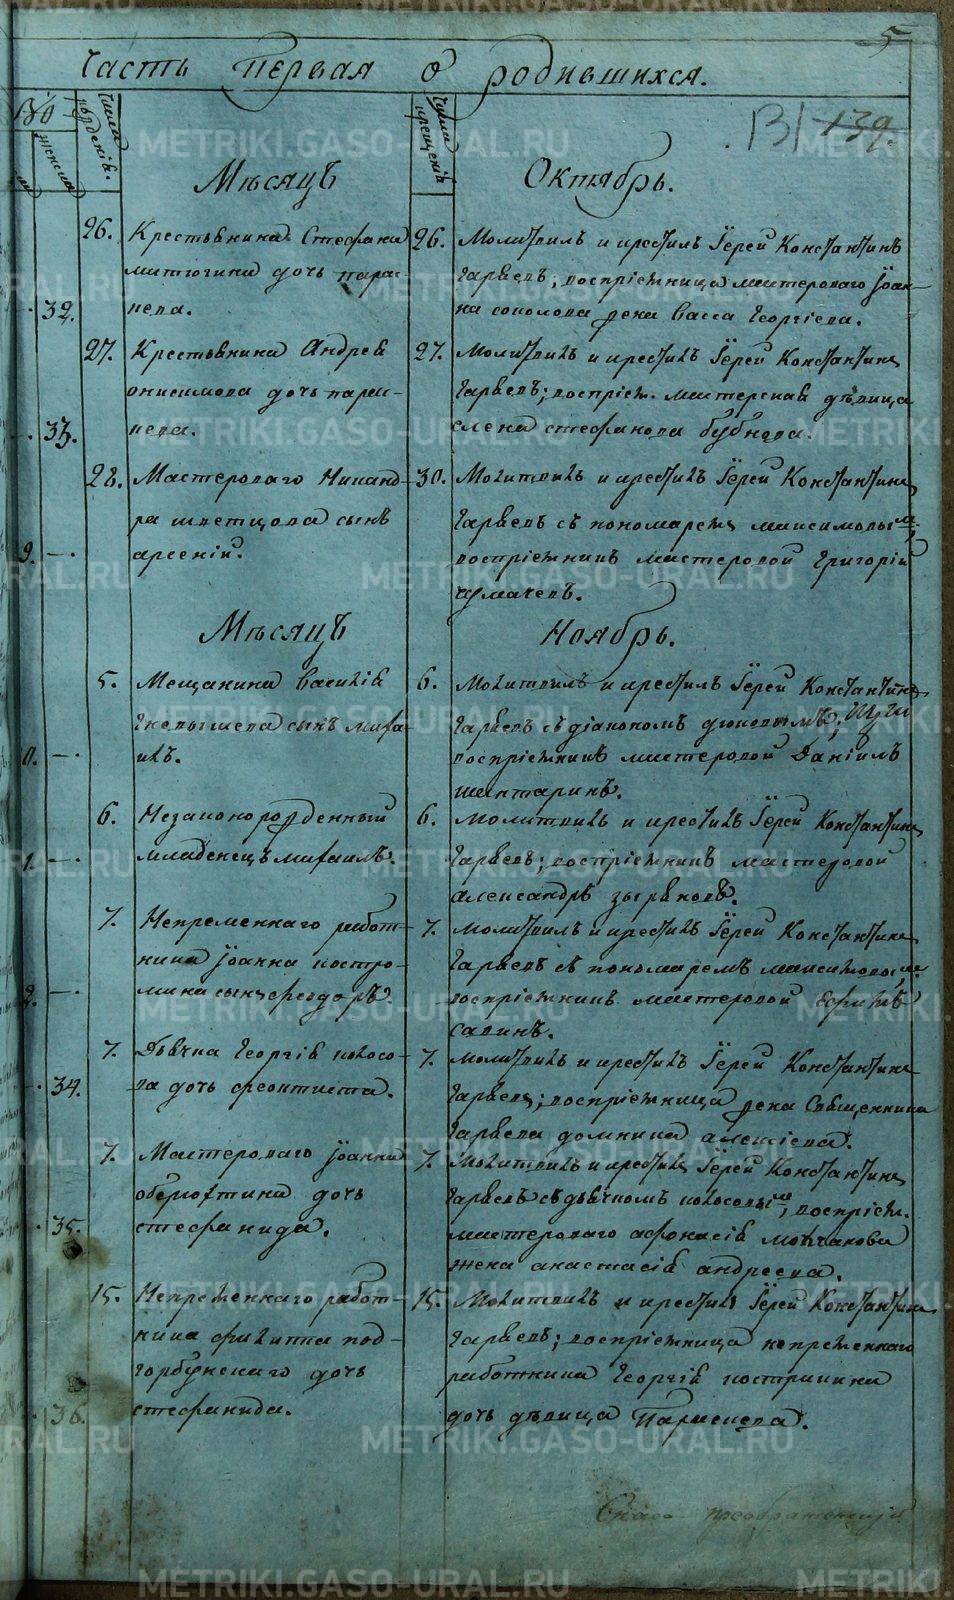 5
Часть первая о родившихся.
131 139.
женска
Числа рожденiя.
Числа крещенiя
Мѣсяцъ Октябрь.
26. Крестьянина Стефана
митюгина дочь парас-
32. кева.
26. Молитвилъ и крестилъ Iерей Константинъ
гаряевъ; воспрiемница мастероваго Iоан-
на соколова жена васса Георгiева.
27. Крестьянина Андрея
онисимова дочь парас-
33. кева.
27. Молитвилъ и крестилъ Iерей Константинъ
гаряевъ; воспрiем. мастерская дѣвица
елена стефанова бубнова.
28. Мастероваго Никанд-
ра швецова сынъ
9. — арсенiй.
30. Молитвилъ и крестилъ Iерей Константинъ
гаряевъ съ пономаремъ максимовымъ
воспрiемникъ мастеровой Григорiй
чумачевъ.
Мѣсяцъ Ноябрь.
5. Мещанина Василiя
сынъ миха-
0. — илъ.
6. Молитвилъ и крестилъ Iерей Константинъ
гаряевъ съ дiакономъ
воспрiемникъ мастеровой Данiилъ
шантаринъ.
6. Незаконорожденный
1. — младенецъ михаилъ.
6. Молитвилъ и крестилъ Iерей Константинъ
гаряевъ; воспрiемникъ мастеровой
александръ зыряновъ.
7. Непременнаго работ-
ника Iоанна костро-
2. — мина сынъ феодоръ.
7. Молитвилъ и крестилъ Iерей Константинъ
гаряевъ съ пономаремъ максимовымъ
воспрiемникъ мастеровой Ефимъ
савинъ.
7. Дьячка Георгiя колосо-
34. ва дочь феоктиста.
7. Молитвилъ и крестилъ Iерей Константинъ
гаряевъ; воспрiемница жена Священника
гаряева домника алексiева.
7. Мастероваго Iоанна
оберюхтина дочь
35. стефанида.
7. Молитвилъ и крестилъ Iерей Константинъ
гаряевъ съ дьячкомъ колосовымъ, воспрiем.
мастероваго афонасiя молчанова
жена анастасiя андреева.
15. Непременнаго работ-
ника филиппа под-
горбунскаго дочь
36. стефанида.
15. Молитвилъ и крестилъ Iерей Константинъ
гаряевъ; воспрiемница непременнаго
работника Георгiя костромина
дочь дѣвица Параскева.
Спасо-преображенскiй
METRIKI.GASO-URAL.RU